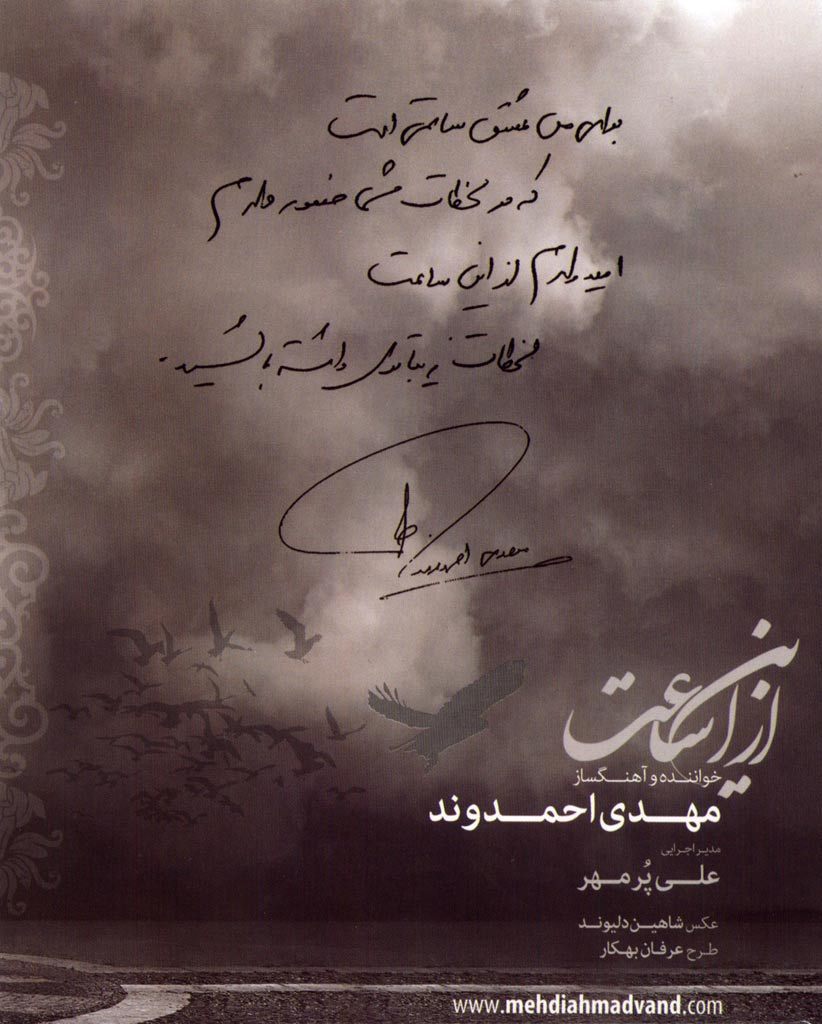 برای من عشق ساعتی است
که در لحظات شما حضور دارم
امیدوارم از این ساعت
لحظات زیباتری داشته باشید.
مهدی احمدوند
از این ساعت
خواننده و آهنگساز
مهدی احمدوند
مدیر اجرایی
علی پُرمهر
عکس شاهین دلیوند
طرح عرفان بهکار
www.mehdiahmadvand.com